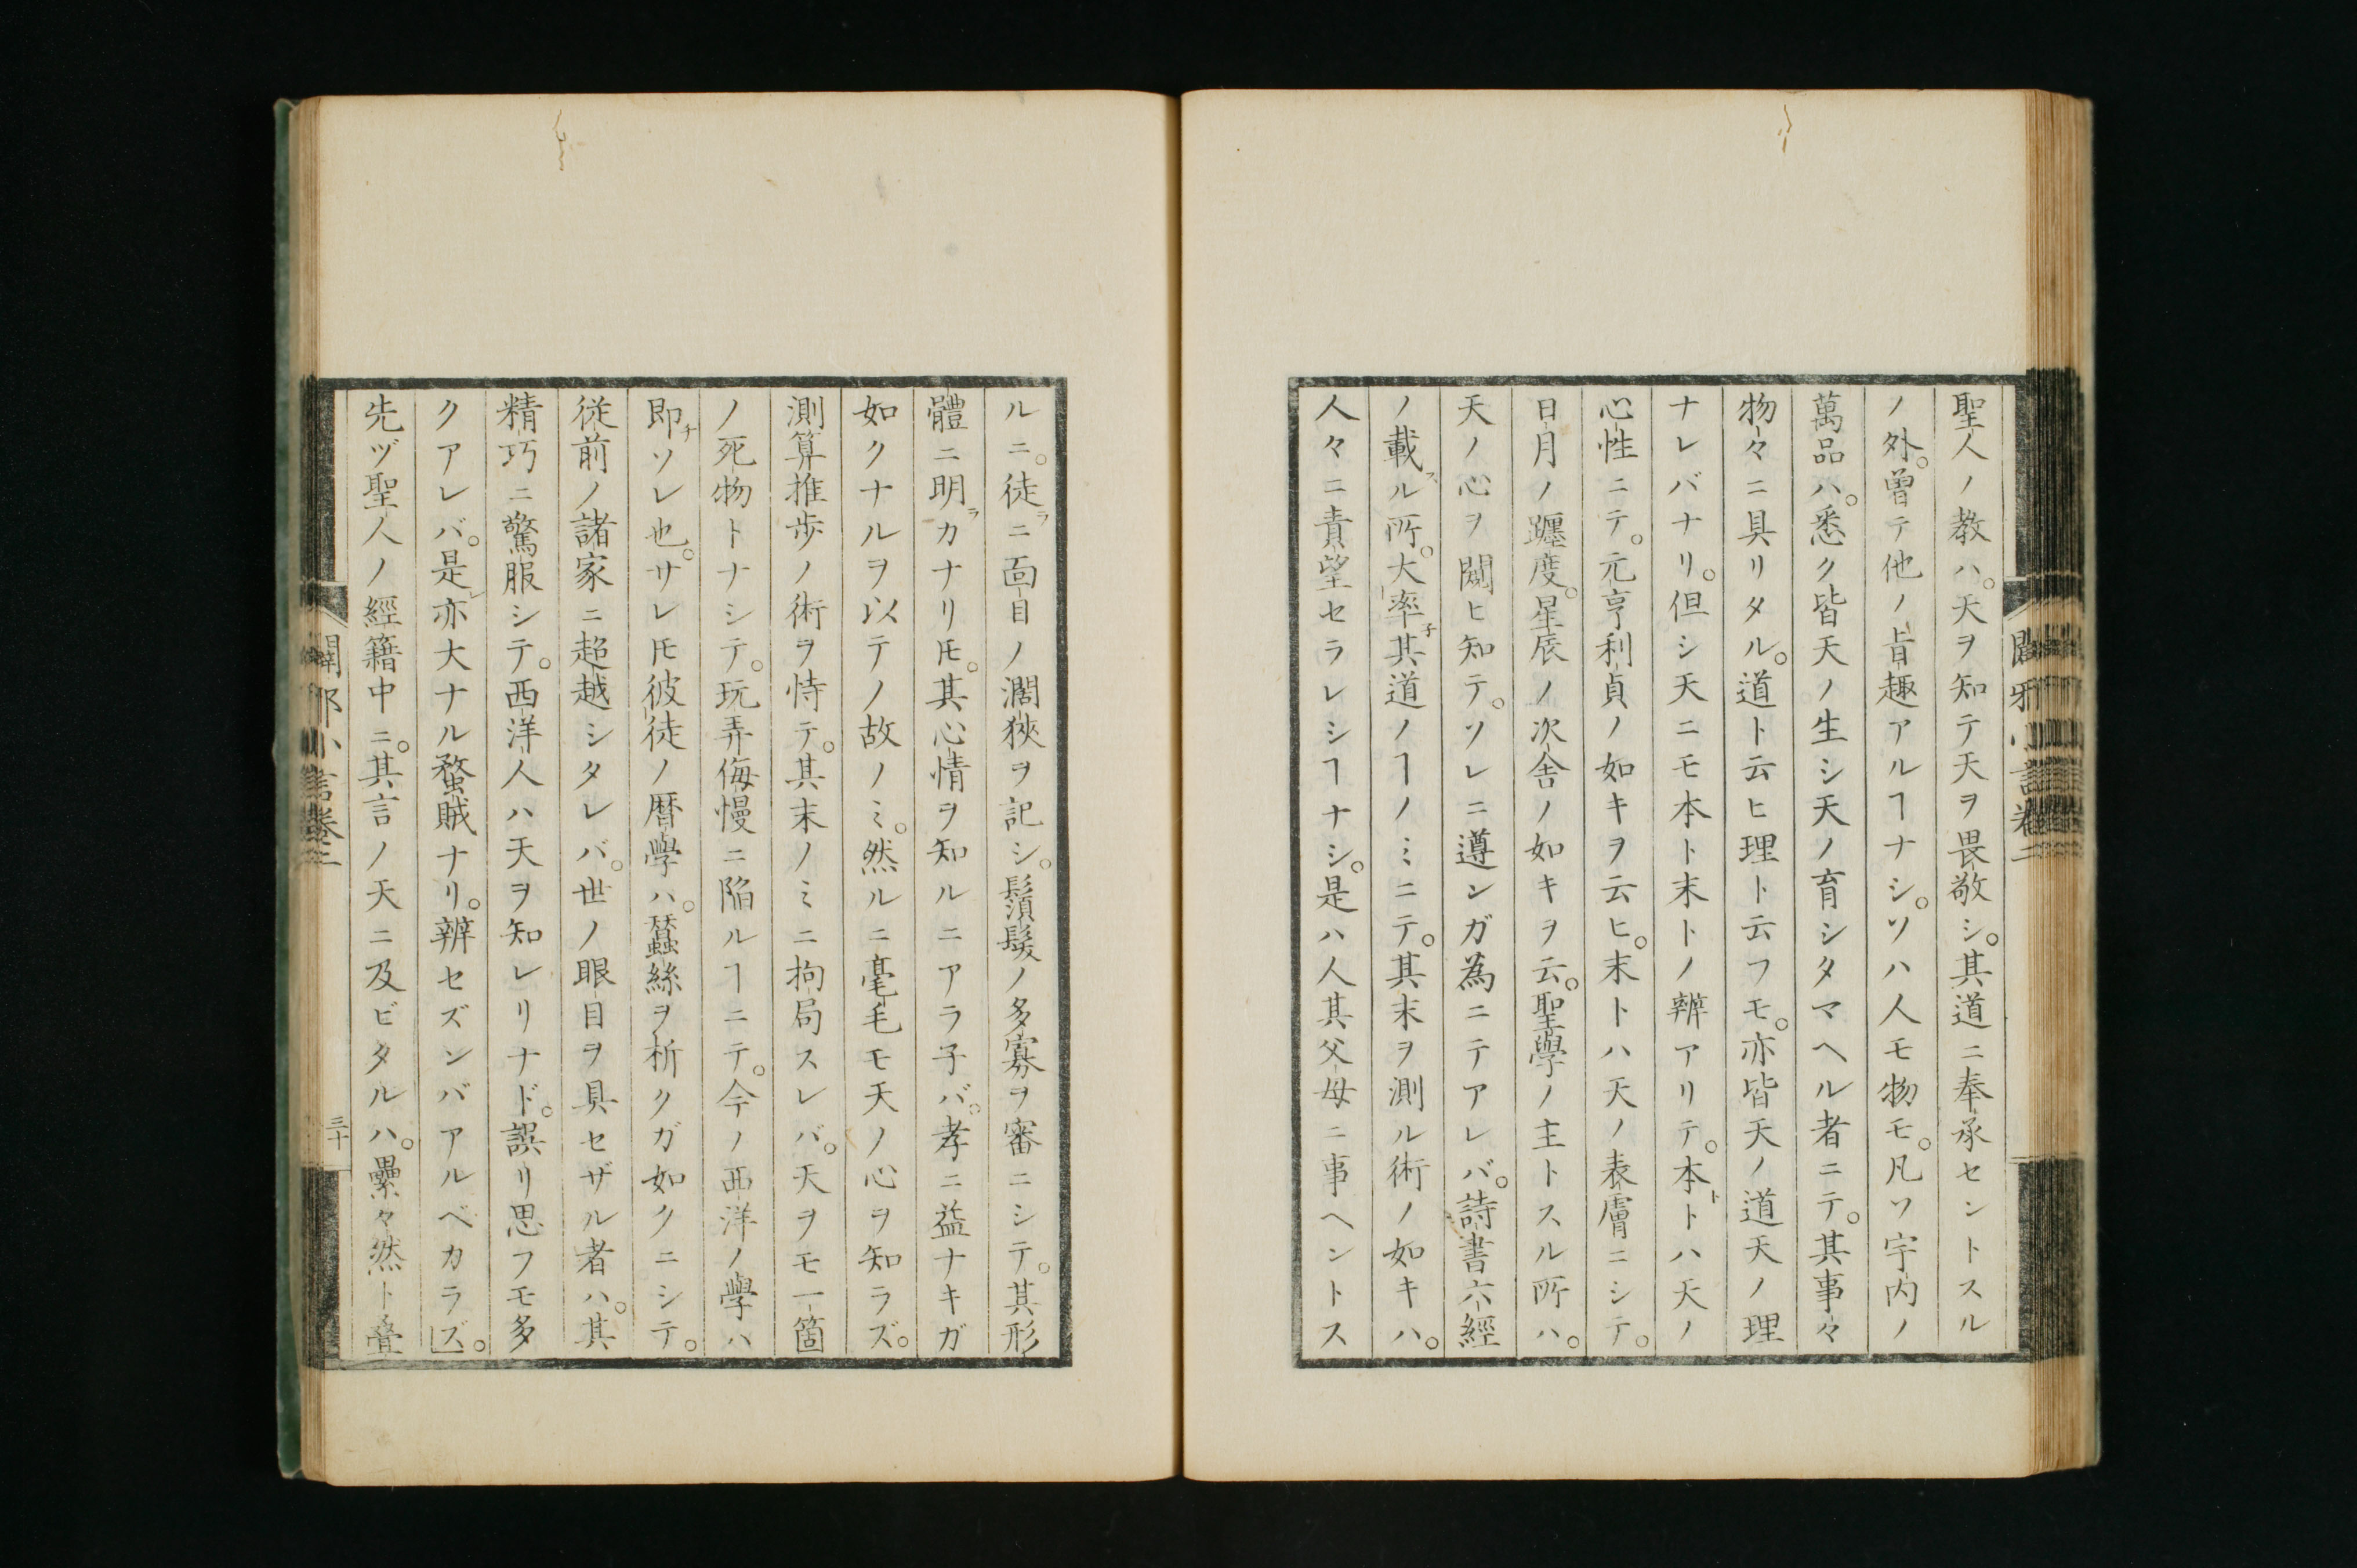 聖人ノ教ハ。天ヲ知テ天ヲ畏敬シ。其道ニ奉承セントスル
ノ外。曽テ他ノ旨趣アルヿナシ。ソハ人モ物モ。凡ソ宇内ノ
萬品ハ。悉ク皆天ノ生シ天ノ育シタマヘル者ニテ。其事々
物々ニ具リタル。道ト云ヒ理ト云フモ。亦皆天ノ道天ノ理
ナレバナリ。但シ天ニモ本ト末トノ辨アリテ。本トハ天ノ
心性ニテ。元亨利貞ノ如キヲ云ヒ。末トハ天ノ表膚ニシテ。
日月ノ躔度。星辰ノ次舎ノ如キヲ云。聖學ノ主トスル所ハ。
天ノ心ヲ闚ヒ知テ。ソレニ遵ンガ為ニテアレバ。詩書六經
ノ載スル所。大率其道ノヿノミニテ。其末ヲ測ル術ノ如キハ。
人々ニ責望セラレシヿナシ。是ハ人其父母ニ事ヘントス
ルニ。徒ラニ面目ノ濶狹ヲ記シ。鬚髮ノ多寡ヲ審ニシテ。其形
體ニ明ラカナリ𪜈。其心情ヲ知ルニアラ子バ。孝ニ益ナキガ
如クナルヲ以テノ故ノミ。然ルニ毫毛モ天ノ心ヲ知ラズ。
測算推歩ノ術ヲ恃テ。其末ノミニ拘局スレバ。天ヲモ一箇
ノ死物トナシテ。玩弄侮慢ニ陥ルヿニテ。今ノ西洋ノ學ハ
即チソレ也。サレ𪜈彼徒ノ暦學ハ。蠶絲ヲ析クガ如クニシテ。
従前ノ諸家ニ超越シタレバ。世ノ眼目ヲ具セザル者ハ。其
精巧ニ驚服シテ。西洋人ハ天ヲ知レリナド。誤リ思フモ多
クアレバ。是レ亦大ナル蝥賊ナリ。辨セズンバアルベカラズ。
先ヅ聖人ノ經籍中ニ。其言ノ天ニ及ビタルハ。纍々然ト疊
闢邪小言巻二
三十